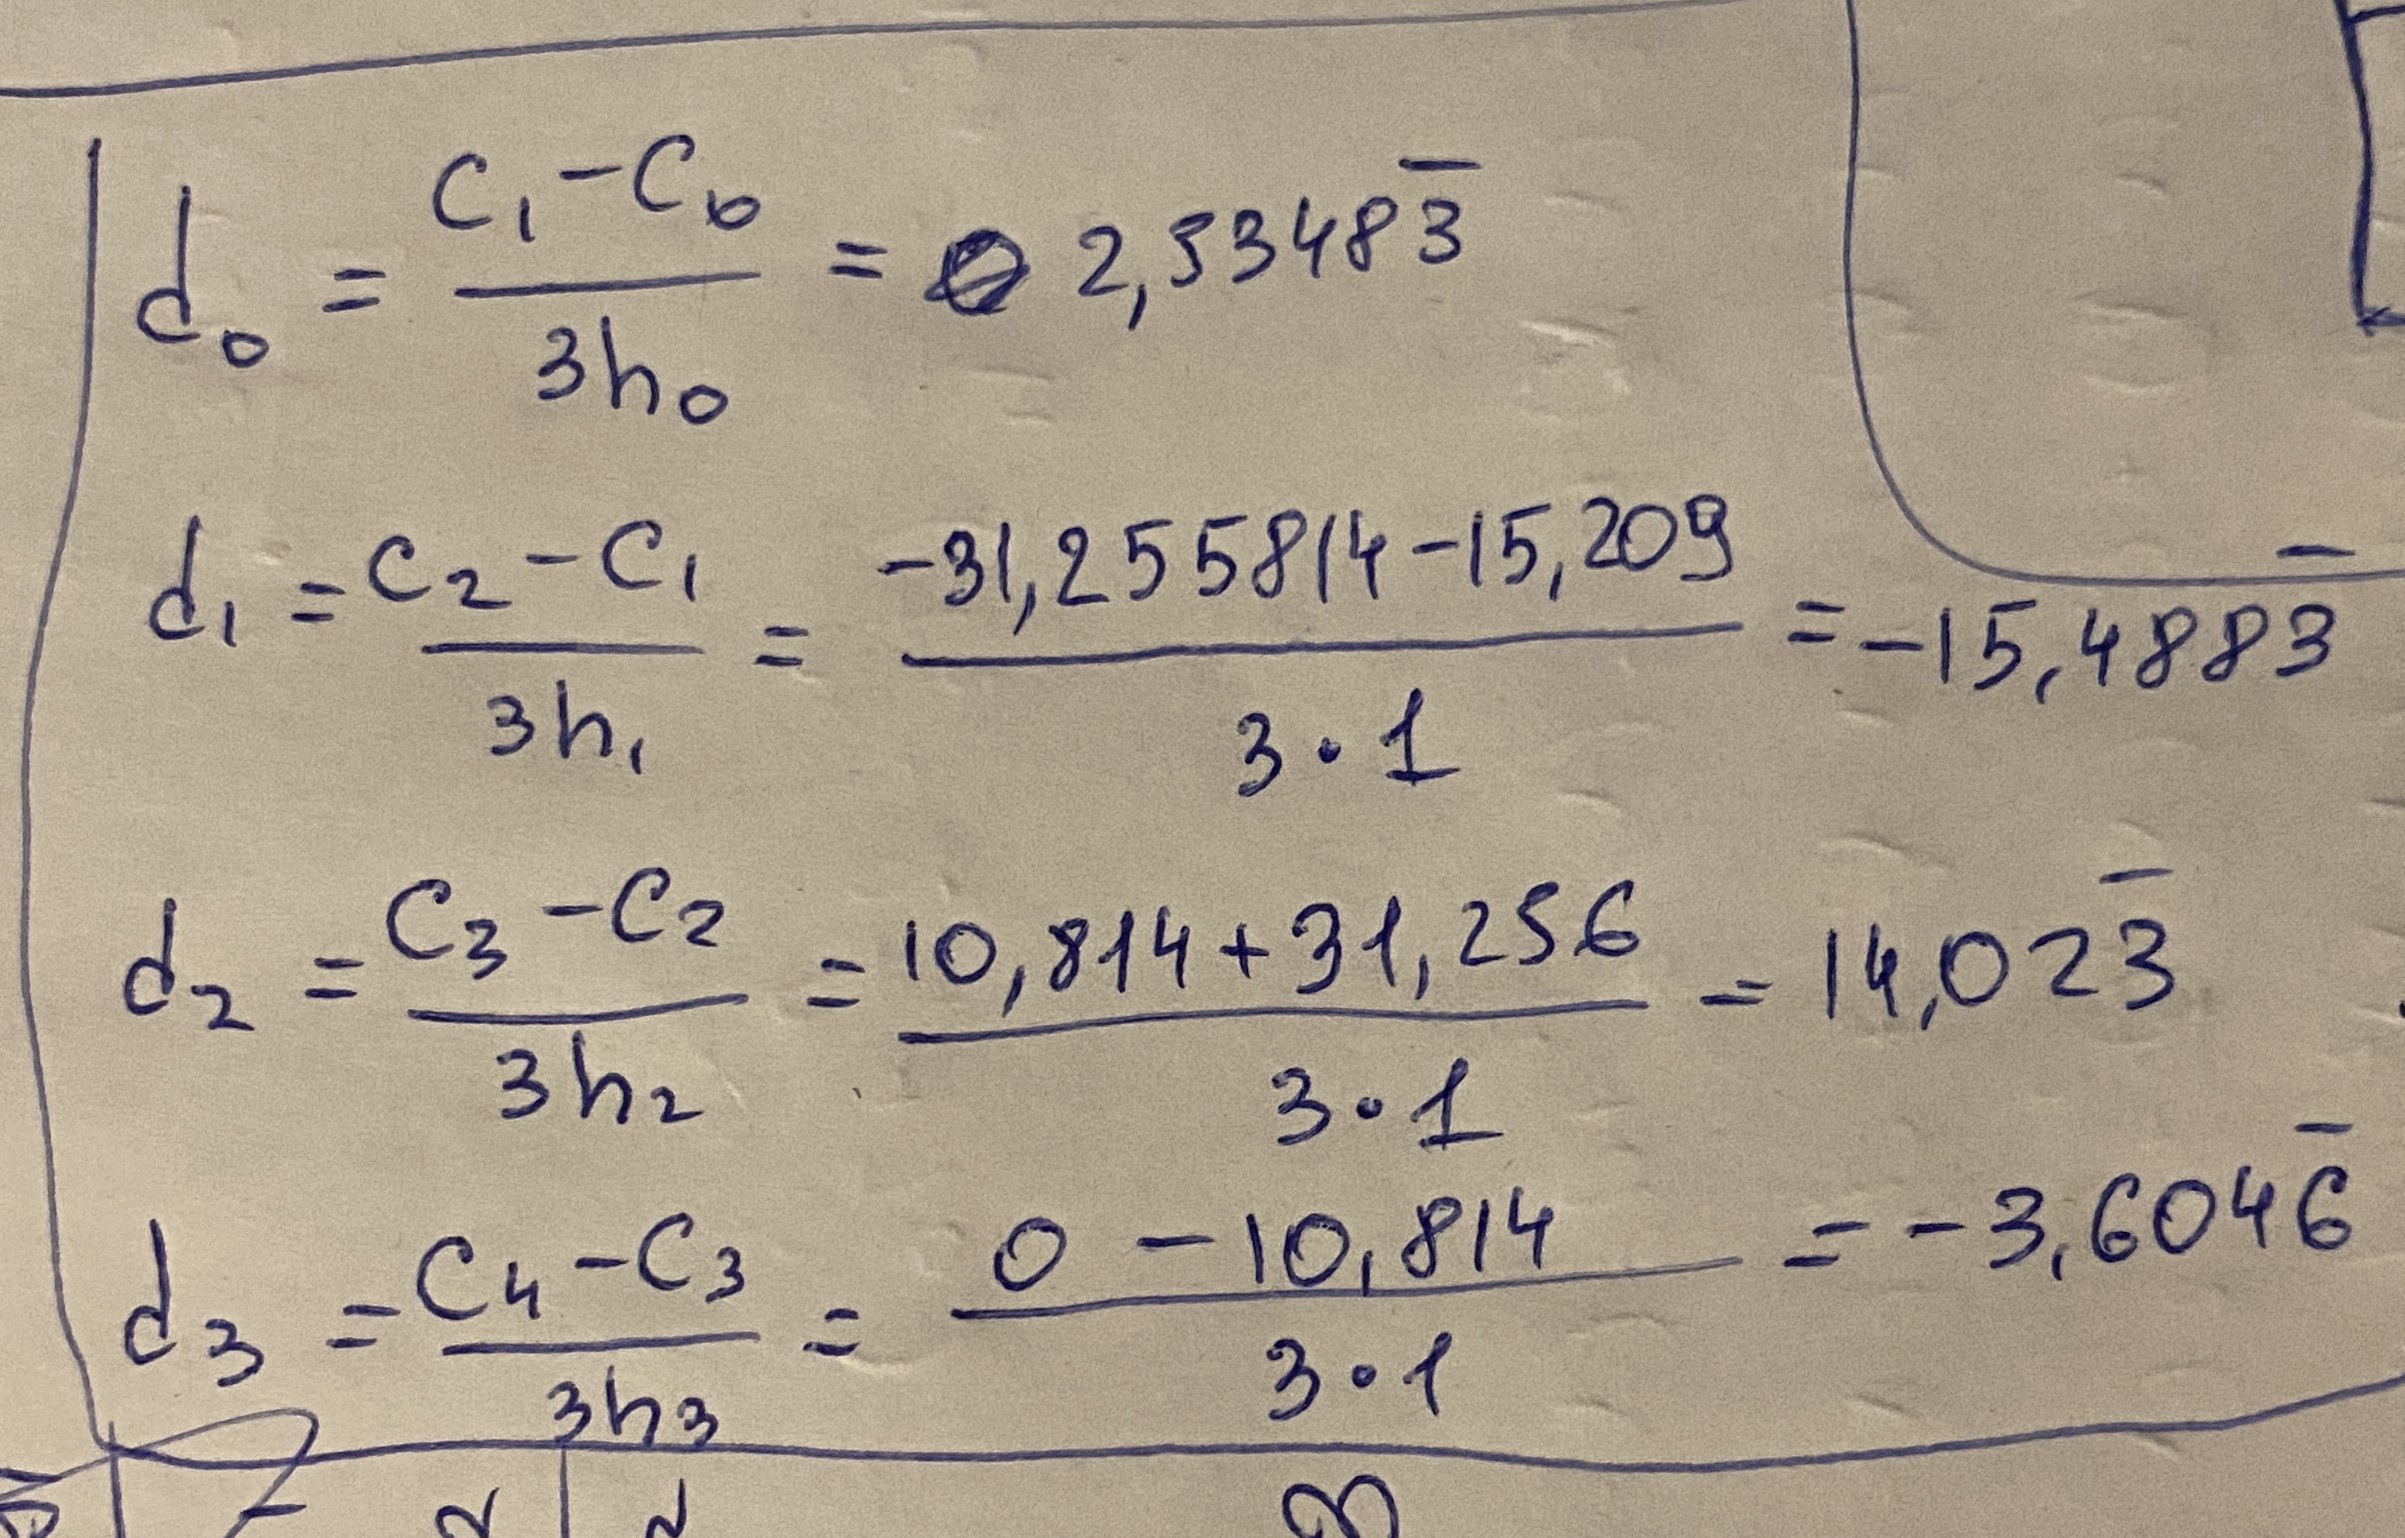 d₀ = (c₁ - c₀)/(3h₀) = 2,53483̅
d₁ = (c₂ - c₁)/(3h₁) = (-31,255814 - 15,209)/(3·1) = -15,4883̅
d₂ = (c₃ - c₂)/(3h₂) = (10,814 + 31,256)/(3·1) = 14,023̅
d₃ = (c₄ - c₃)/(3h₃) = (0 - 10,814)/(3·1) = -3,6046̅